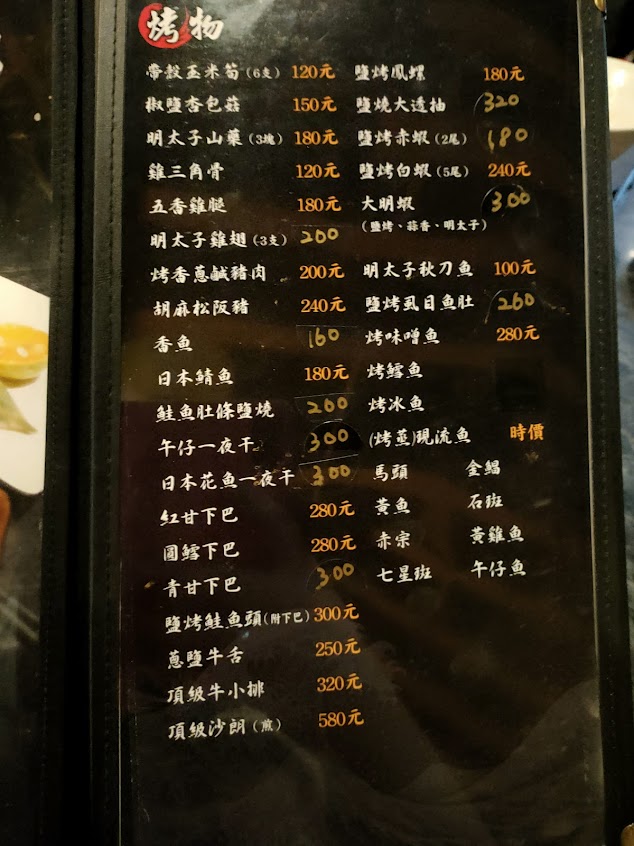 烤物
帶殼玉米筍(6支) 120元
椒鹽杏包菇 150元
明太子山藥(3塊) 180元
雞三角骨 120元
五香雞腿 180元
明太子雞翅(3支) 200
烤香蔥鹹豬肉 200元
胡麻松阪豬 240元
香魚 160
日本鯖魚 180元
鮭魚肚條鹽燒 200
午仔一夜干 300
日本花魚一夜干 300
紅甘下巴 280元
圓鱈下巴 280元
青甘下巴 300
鹽烤鮭魚頭(附下巴) 300元
蔥鹽牛舌 250元
頂級牛小排 320元
頂級沙朗(煎) 580元
鹽烤鳳螺 180元
鹽燒大透抽 320
鹽烤赤蝦(2尾) 180
鹽烤白蝦(5尾) 240元
大明蝦 300
(鹽烤、蒜香、明太子)
明太子秋刀魚 100元
鹽烤虱目魚肚 260
烤味噌魚 280元
烤鱈魚
烤冰魚
(烤蒸)現流魚 時價
馬頭 金鯧
黃魚 石斑
赤宗 黃雞魚
七星斑 午仔魚